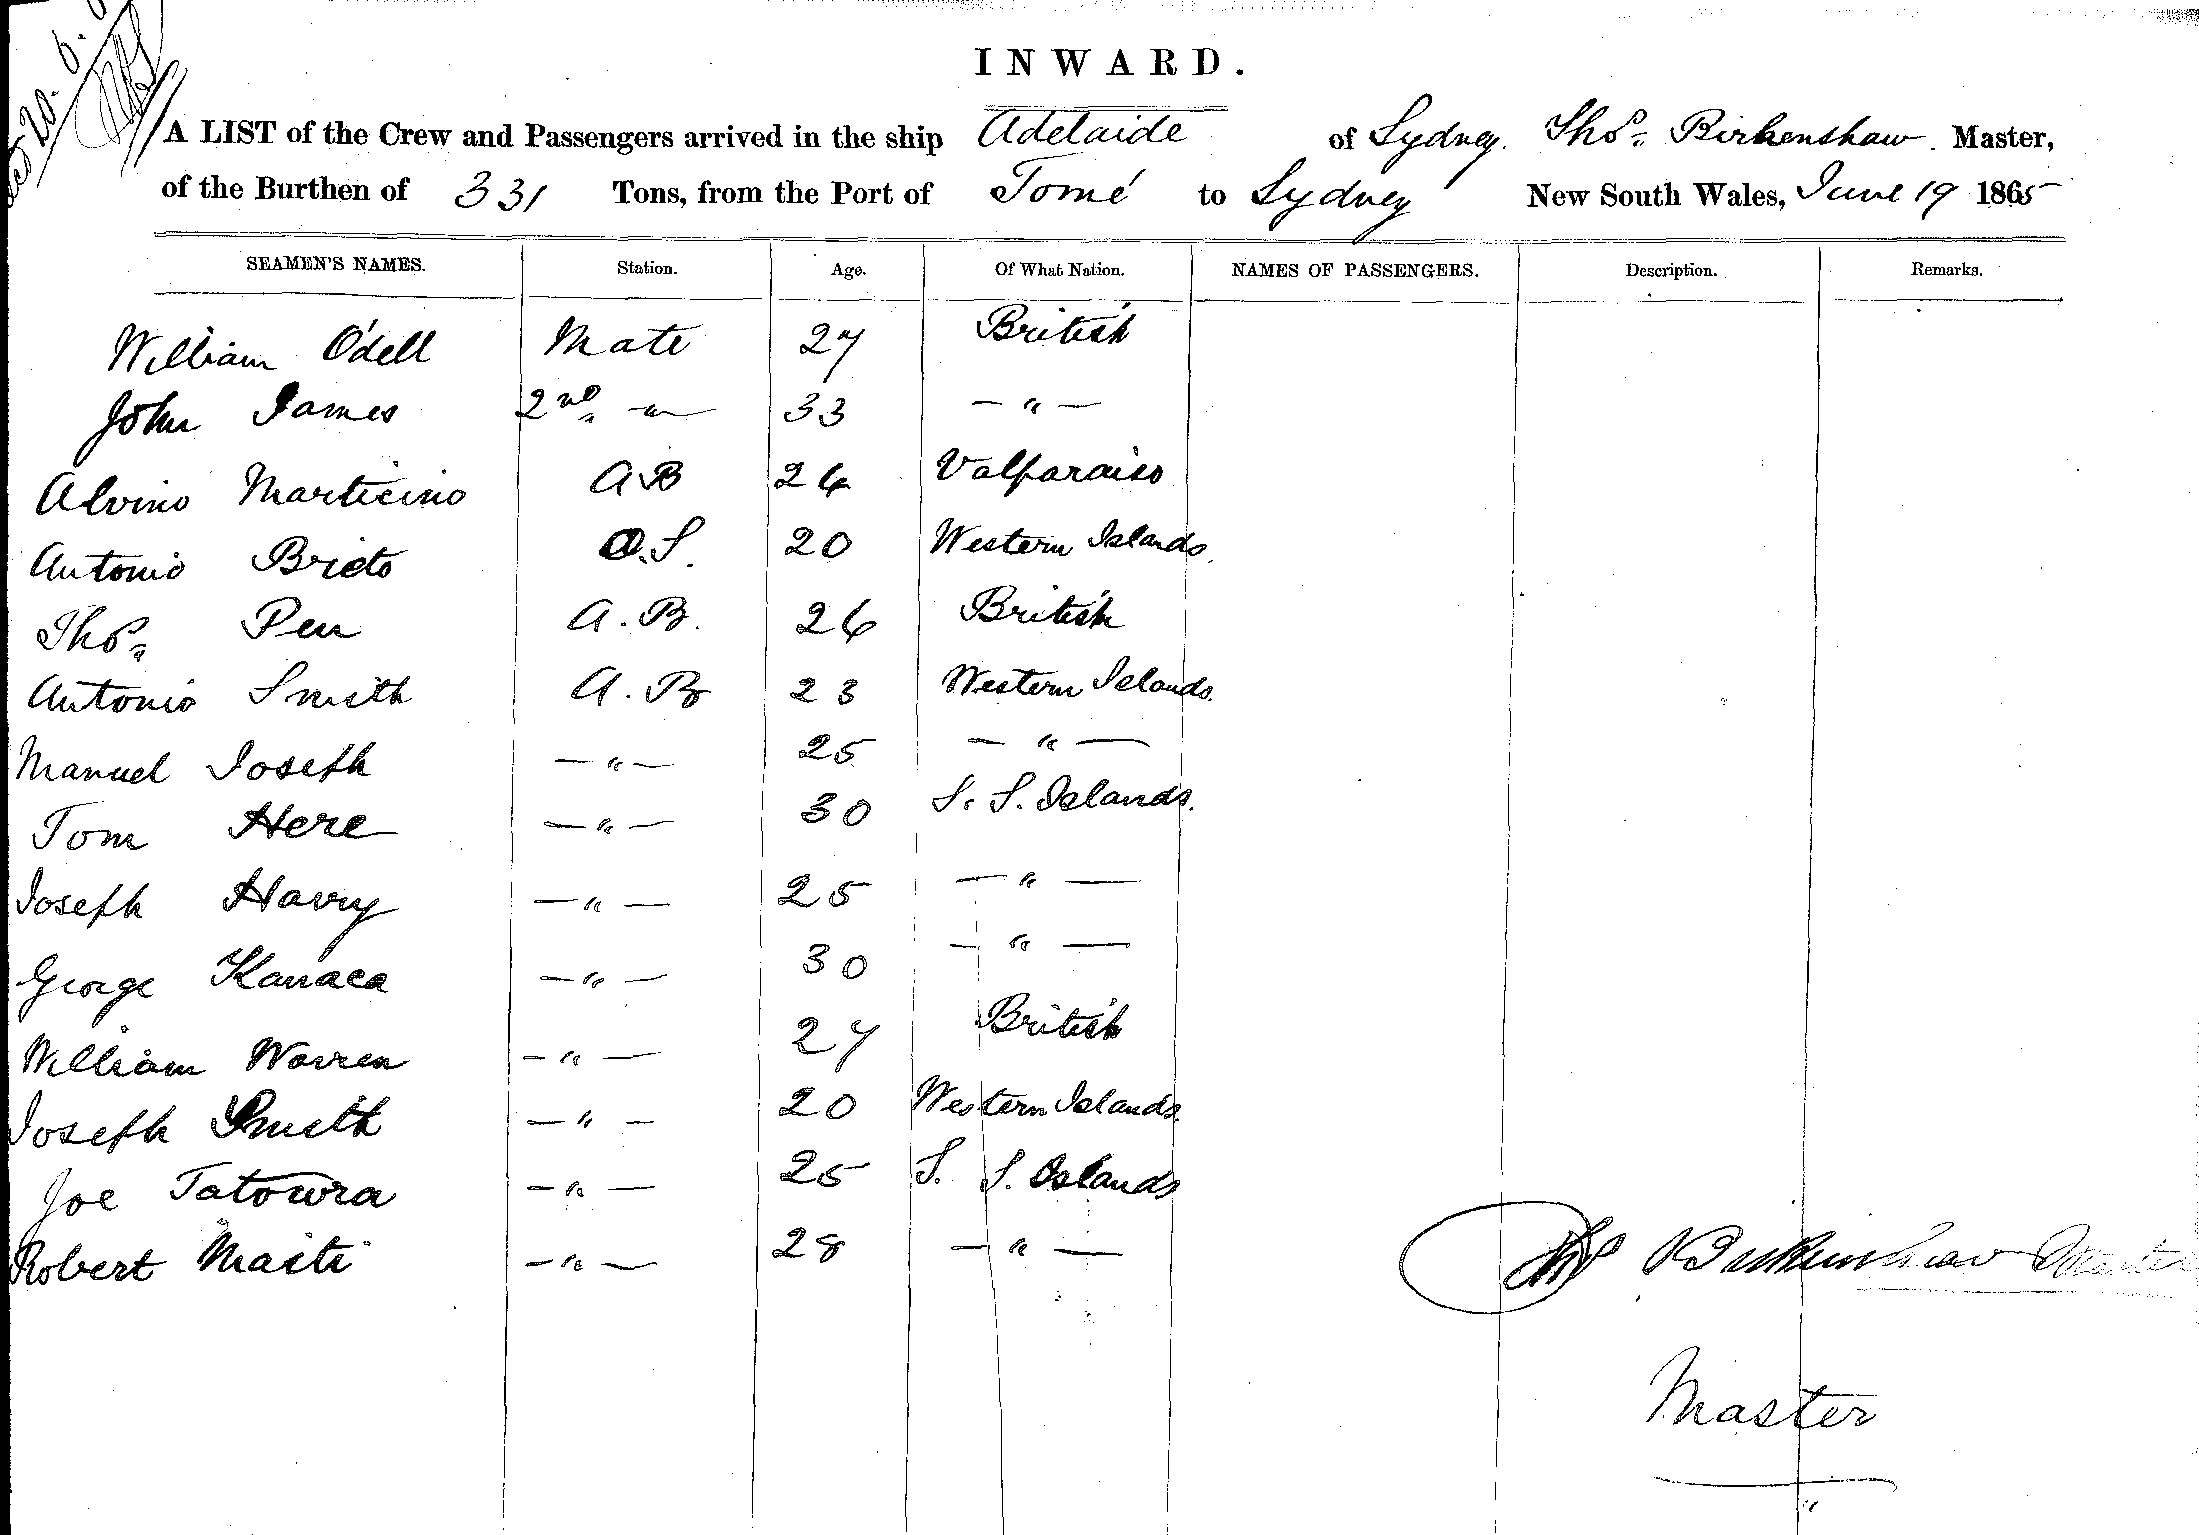 20. 6.
INWARD.
A LIST of the Crew and Passengers arrived in the ship Adelaide of Sydney. Thos. Birkenshaw. Master,
of the Burthen of 331 Tons, from the Port of Tomé to Sydney New South Wales, June 19 1865
SEAMEN'S NAMES. Station. Age. Of What Nation. NAMES OF PASSENGERS. Description. Remarks.
William O'dell Mate 27 British
John James 2nd — " — 33 — " —
Alvino Marticino A.B 26 Valparaiso
Antonio Brieto O.S. 20 Western Islands.
Thos. Pen A.B. 26 British
Antonio Smith A.B 23 Western Islands.
Manuel Joseph — " — 25 — " —
Tom Here — " — 30 S. S. Islands.
Joseph Harry — " — 25 — " —
George Kanaca — " — 30 — " —
William Warren — " — 27 British
Joseph Smith — " — 20 Western Islands.
Joe Tatowra — " — 25 S. S. Islands
Robert Maiti — " — 28 — " —
Thos Birkenshaw Master
Master
"